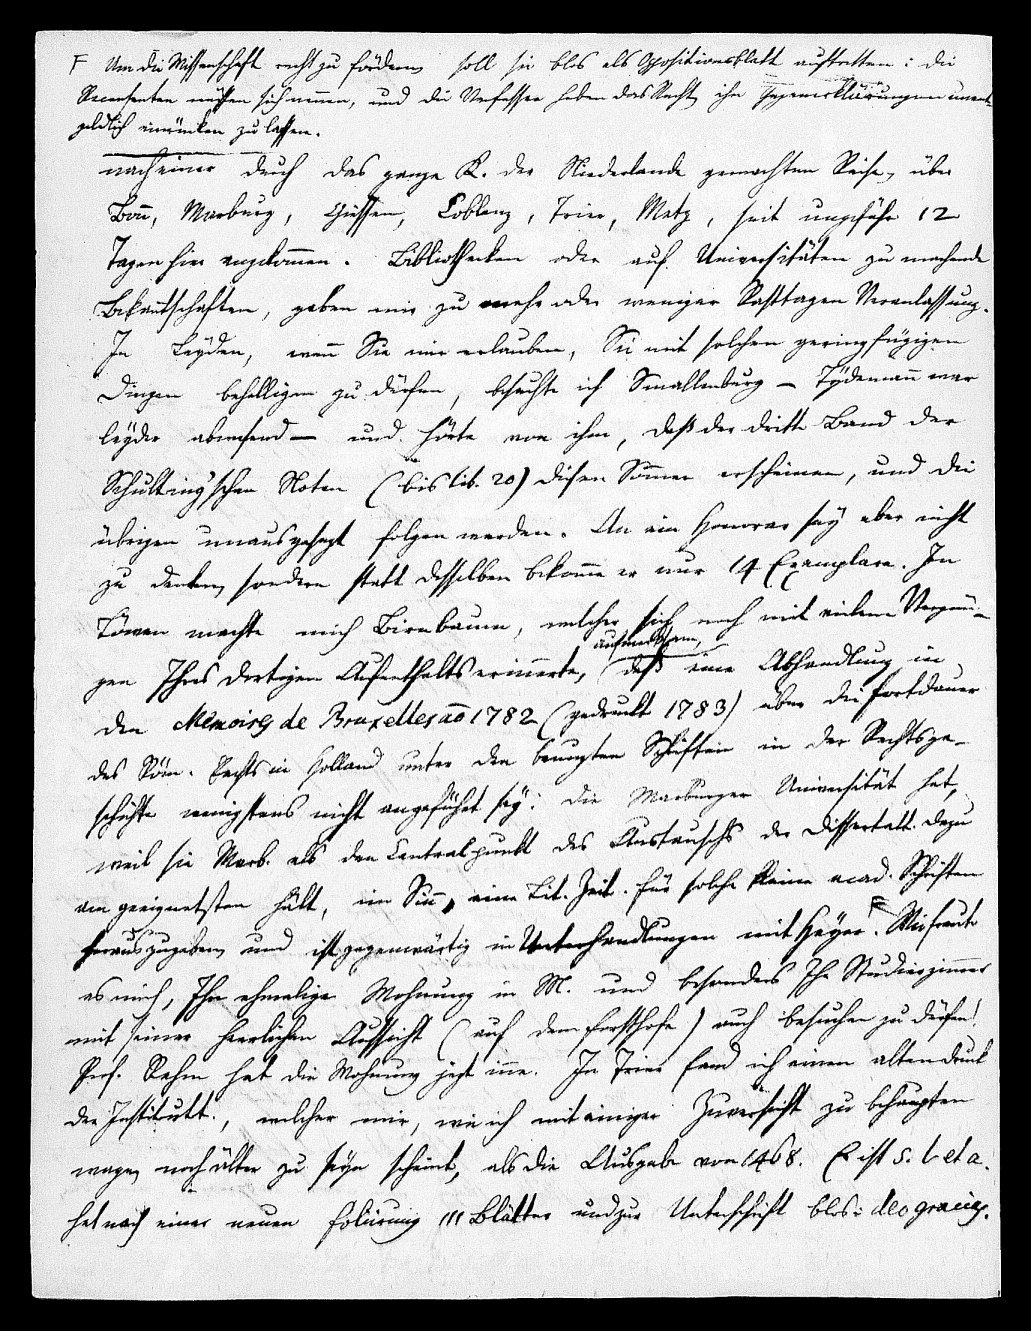 F Um die Wissenschaft recht zu fördern, soll sie blos als Oppositionsblatt auftretten: die
Recensenten müssen sich nennen, und die Verfasser haben das Recht, ihre Gegenerklärungen unent-
geldlich einrücken zu lassen.
nach einer durch das ganze K. der Niederlande gemachten Reise, über
Bonn, Marburg, Giessen, Coblenz, Trier, Metz, seit ungefähr 12
Tagen hier angekommen. Bibliotheken oder auf Universitäten zu machende
Bekanntschaften, gaben mir zu mehr oder weniger Rasttagen Veranlassung.
In Leyden, wenn Sie mir erlauben, Sie mit solchen geringfügigen
Dingen behelligen zu dürfen, besuchte ich Smallenburg – Tydemann war
leyder abwesend – und hörte von ihm, daß der dritte Band der
Schulting'schen Noten (bis lib. 20) diesen Sommer erscheinen, und die
übrigen unausgesezt folgen werden. An ein Honorar sey aber nicht
zu denken, sondern statt desselben bekomme er nur 14 Exemplare. In
Löwen machte mich Birnbaum, welcher sich noch mit vielem Vergnü-
gen Ihres dortigen Aufenthalts erinnerte, aufmerksam, daß eine Abhandlung in
den Mémoires de Bruxelles ao 1782 (gedruckt 1783) über die Fortdauer
des Röm. Rechts in Holland unter den benuzten Schriften in der Rechtsge-
schichte wenigstens nicht angeführt sey. Die Marburger Universität hat,
weil sie Marb. als den Centralpunkt des Austauschs der Dissertatt. dazu
am geeignetsten hält, im Sinn, eine Lit. Zeit. für solche kleine acad. Schriften
herauszugeben, und ist gegenwärtig in Unterhandlungen mit Heyer. F Wie freute
es mich, Ihre ehmalige Wohnung in M. und besonders Ihr Studierzimmer
mit seiner herrlichen Aussicht (auf dem Forsthofe) auch besuchen zu dürfen!
Prof. Rehm hat die Wohnung jezt inne. In Trier fand ich einen alten Druck
der Institutt., welcher mir, wie ich mit einiger Zuversicht zu behaupten
wage, noch älter zu seyn scheint, als die Ausgabe von 1468. Er ist s. l. et a.
hat nach einer neuen Foliirung 111 Blätter und zur Unterschrift blos: deo gracias.